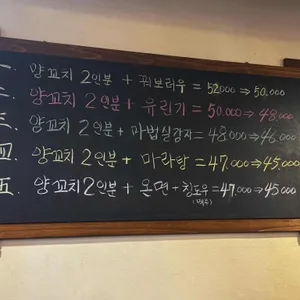 一. 양꼬치 2인분 + 꿔보러우 = 52000 ⇒ 50.000
二. 양꼬치 2인분 + 유린기 = 50.000 ⇒ 48.000
三. 양꼬치 2인분 + 마법실감자 = 48,000 ⇒ 46.000
四. 양꼬치 2인분 + 마라탕 = 47.000 ⇒ 45.000
五. 양꼬치 2인분 + 온면 + 칭도우 = 47,000 ⇒ 45000
(맥주)